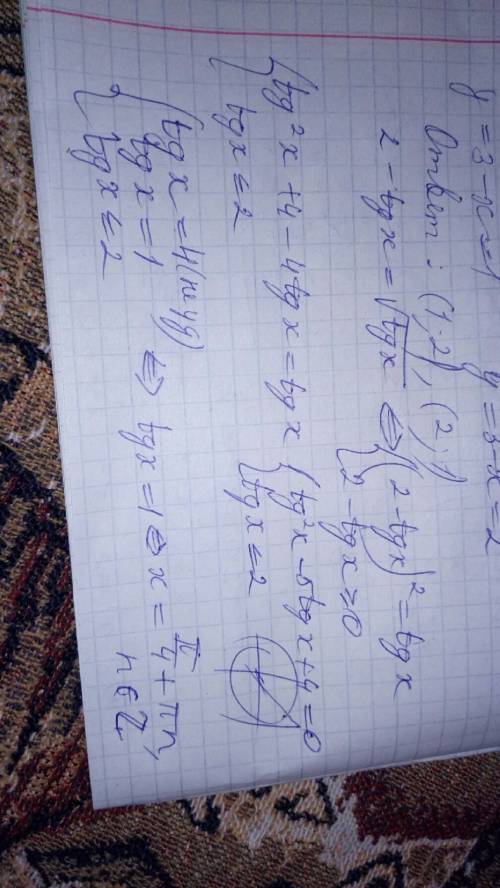 y = 3 - x = 1 y = 3 - x = 2
Ответ: (1; 2), (2; 1)
2 - tg x = √tg x ⇔ { (2 - tg x)² = tg x
2 - tg x ≥ 0
{ tg²x + 4 - 4tg x = tg x { tg²x - 5tg x + 4 = 0
tg x ≤ 2 tg x ≤ 2
{ tg x = 4 (не уд)
tg x = 1 ⇔ tg x = 1 ⇔ x = π/4 + πn,
tg x ≤ 2 n ∈ Z